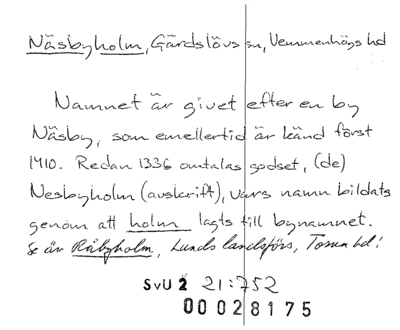 Näsbyholm, Gärdslövs sn, Vemmenhögs hd
Namnet är givet efter en by
Näsby, som emellertid är känd först
1410. Redan 1336 omtalas godset, (de)
Nesbyholm (avskrift), vars namn bildats
genom att holm lagts till bynamnet.
Se äv Råbyholm, Lunds landsförs, Torna hd!
SvU 2 21:752
00028175